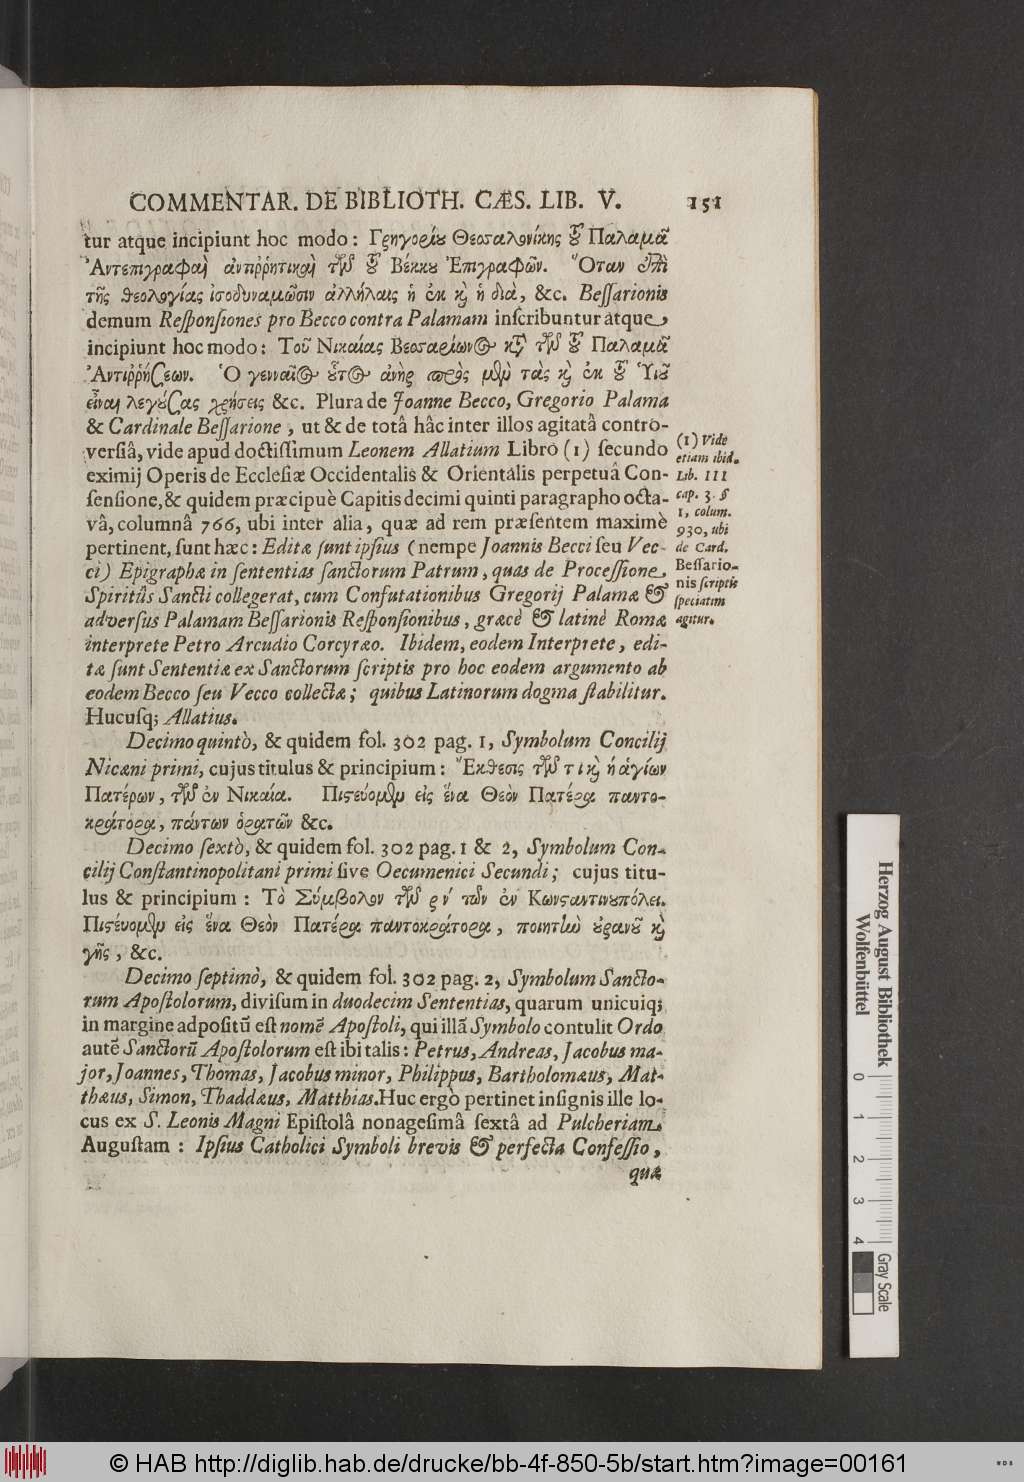 COMMENTAR. DE BIBLIOTH. CÆS. LIB. V. 151
tur atque incipiunt hoc modo: Γρηγορίȣ Θεοσαλονίκης τȣ͂ Παλαμᾶ
Ἀντεπιγραφαὶ ἀντιῤῥητικαὶ τῶν τȣ͂ Βέκκȣ Ἐπιγραφῶν. Ὅταν ἐπὶ
τῆς θεολογίας ἰσοδυναμῶσιν ἀλλήλαις ἡ ἐκ καὶ ἡ διὰ, &c. Beſſarionis
demum Reſponſiones pro Becco contra Palamam inſcribuntur atque
incipiunt hoc modo: Τοῦ Νικαίας Βεσσαρίωνος κατὰ τῶν τȣ͂ Παλαμᾶ
Ἀντιῤῥήσεων. Ὁ γενναῖος ȣ̔͂τος ἀνὴρ πρὸς μὲν τὰς καὶ ἐκ τȣ͂ Ὑιȣ͂
εἶναι λεγȣ́σας χρήσεις &c. Plura de Joanne Becco, Gregorio Palama
& Cardinale Beſſarione, ut & de totâ hâc inter illos agitatâ contro-
verſiâ, vide apud doctiſſimum Leonem Allatium Libro (1) ſecundo
eximij Operis de Eccleſiæ Occidentalis & Orientalis perpetuâ Con-
ſenſione, & quidem præcipuè Capitis decimi quinti paragrapho octa-
vâ, columnâ 766, ubi inter alia, quæ ad rem præſentem maximè
pertinent, ſunt hæc: Editæ ſunt ipſius (nempe Joannis Becci ſeu Vec-
ci) Epigraphæ in ſententias ſanctorum Patrum, quas de Proceſſione
Spiritûs Sancti collegerat, cum Confutationibus Gregorij Palamæ &
adverſus Palamam Beſſarionis Reſponſionibus, græcè & latinè Romæ
interprete Petro Arcudio Corcyræo. Ibidem, eodem Interprete, edi-
tæ ſunt Sententiæ ex Sanctorum ſcriptis pro hoc eodem argumento ab
eodem Becco ſeu Vecco collectæ; quibus Latinorum dogma ſtabilitur.
Hucuſq; Allatius.
(1) Vide
etiam ibid.
Lib. III
cap. 3. §
1, colum.
930, ubi
de Card.
Beſſario-
nis ſcriptis
ſpeciatim
agitur.
Decimo quintò, & quidem fol. 302 pag. 1, Symbolum Concilij
Nicæni primi, cujus titulus & principium: Ἔκθεσις τῶν τιὴ ἁγίων
Πατέρων, τῶν ἐν Νικαία. Πιστεύομεν εἰς ἕνα Θεὸν Πατέρα παντο-
κράτορα, πάντων ὁρατῶν &c.
Decimo ſextò, & quidem fol. 302 pag. 1 & 2, Symbolum Con-
cilij Conſtantinopolitani primi ſive Oecumenici Secundi; cujus titu-
lus & principium: Τὸ Σύμβολον τῶν ρν' τῶν ἐν Κωνσταντινȣπόλει.
Πιστέυομεν εἰς ἕνα Θεὸν Πατέρα παντοκράτορα, ποιητὴν ȣ̓ρανȣ͂ καὶ
γῆς, &c.
Decimo ſeptimò, & quidem fol. 302 pag. 2, Symbolum Sancto-
rum Apoſtolorum, diviſum in duodecim Sententias, quarum unicuiq;
in margine adpoſitū eſt nomē Apoſtoli, qui illā Symbolo contulit Ordo
autē Sanctorū Apoſtolorum eſt ibi talis: Petrus, Andreas, Jacobus ma-
jor, Joannes, Thomas, Jacobus minor, Philippus, Bartholomæus, Mat-
thæus, Simon, Thaddæus, Matthias. Huc ergò pertinet inſignis ille lo-
cus ex S. Leonis Magni Epiſtolâ nonageſimâ ſextâ ad Pulcheriam
Auguſtam: Ipſius Catholici Symboli brevis & perfecta Confeſſio,
quæ
Herzog August Bibliothek
Wolfenbüttel
0 1 2 3 4
Gray Scale
© HAB http://diglib.hab.de/drucke/bb-4f-850-5b/start.htm?image=00161